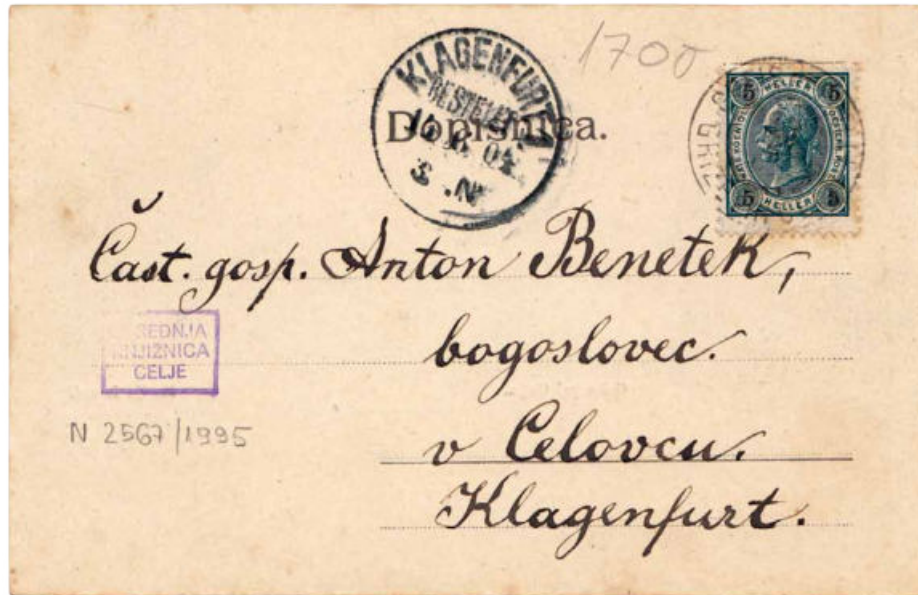 1700
KLAGENFURT
BESTELLT
04
Dopisnica.
5 HELLER 5
5 HELLER 5
Čast. gosp. Anton Benetek,
bogoslovec.
v Celovcu.
Klagenfurt.
KNJIŽNICA
CELJE
N 2567/1995